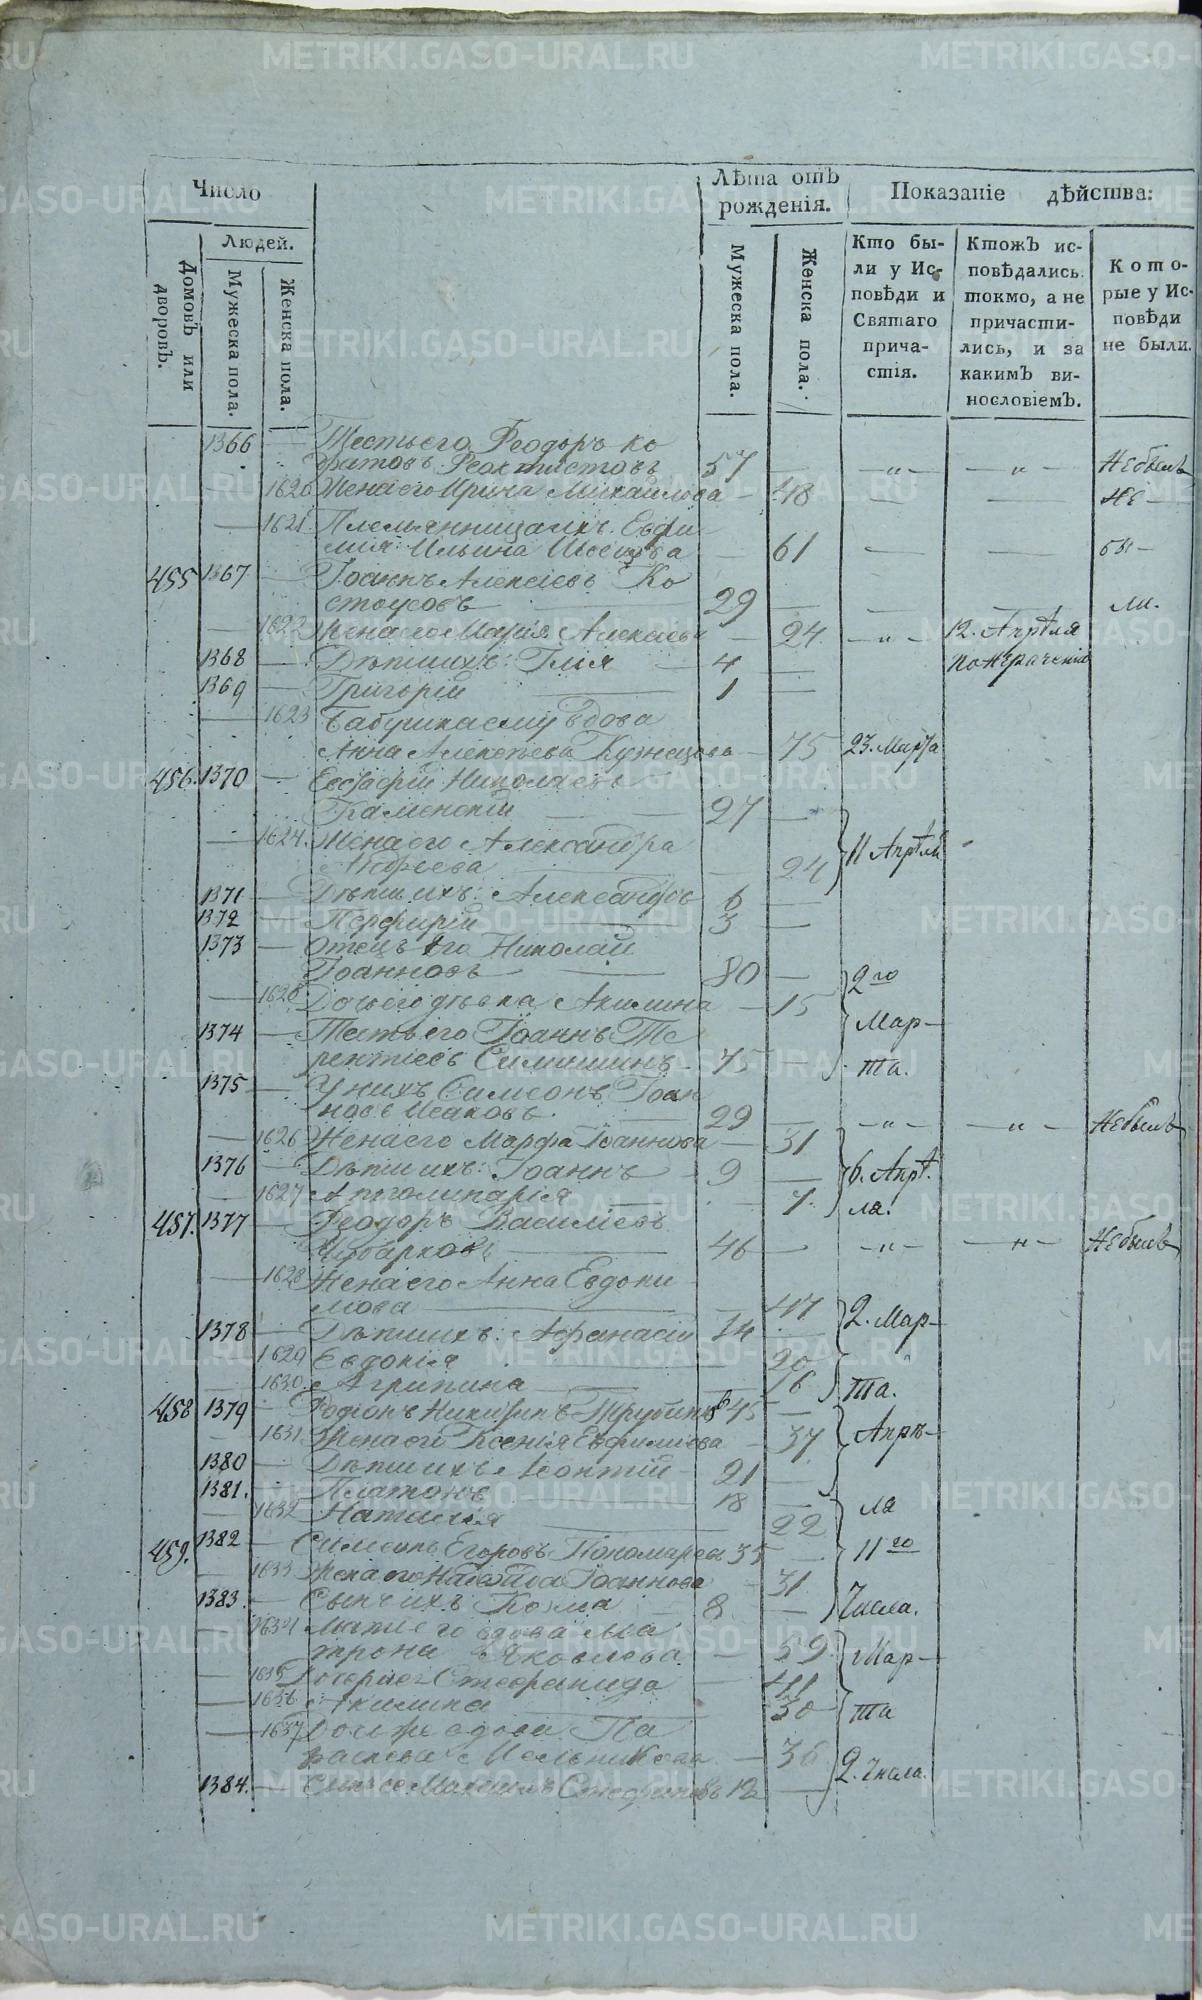 Число
Лѣта отъ рожденія.
Показаніе дѣйства:
Людей.
Домовъ или дворовъ.
Мужеска пола.
Женска пола.
Мужеска пола.
Женска пола.
Кто были у Исповѣди и Святаго причастія.
Ктожъ исповѣдались токмо, а не причастились, и за какимъ винословіемъ.
Которые у Исповѣди не были.
1366 — Тестьего Феодоръ Ко
Феоктистовъ 57 — — „ — — „ — Небылъ
1620 Женаего Ирина Михайлова — 48 — — Не —
— 1621 Племянницаихъ Евфи
мия Ильина — 61 — — бы —
455 1367 — Іоаннъ Алексіевъ Ко
стоусовъ — 29 — — — ли.
— 1622 Женаего Марія Алексіева — 24 — „ — 12. Апрѣля
1368 — Дѣтиихъ: Илія — 4 —
1369 — Григорій — 1 —
— 1623 Бабушкаему вдова
Анна Алексѣева Кузнецова — 75 23. Марта
456. 1370 — Евграфій Николаевъ
Каменскій — 27 —
— 1624. Женаего Александра 11 Апрѣля
Андреева — 24
1371 — Дѣтиихъ: Александръ 6 —
1372 — Перфирій — 3 —
1373 — Отецъ Его Николай
Іоанновъ — 80 — 2го
— 1625 Дочьего дѣвка Акилина — 15
1374 — Тестьего Іоаннъ Те Мар—
рентіевъ 75 — та.
1375 — Унихъ Симеонъ Іоан
новъ Исаковъ. — 29 — — „ — — „ — Небылъ
— 1626 Женаего Марфа Іоаннова — 31
1376 — Дѣтиихъ: Іоаннъ — 9 — 6. Апрѣ.
— 1627 Апполинарія — 7. ля.
457. 1377 — Феодоръ Василіевъ
46 — — „ — — „ — Небылъ
— 1628 Женаего Анна Евдоки
мова — 47
1378 — Дѣтиихъ: Афанасій 14 — 2. Мар—
1629 Евдокія — 20
— 1630. Агрипина — 16 та.
458 1379 — Родіонъ Никифоровъ 45 —
— 1631 Женаего Ксенія Евфиміева — 37 Апрѣ—
1380 — Дѣтиихъ Леонтій — 21 —
1381. — Платонъ — 18 —
— 1632 Наталія — 22 ля
459. 1382 — Симеонъ Егоровъ Пономаревъ 35 — 11го
— 1633 Женаего Іоаннова — 31
1383. — Сынъихъ Козма — 8 — Числа.
— 1634 Матьего вдова Ма
трона Яковлева — 59. Мар—
— 1635 Стефанида — 41
— 1636 Акилина — 30 та
— 1637 вдова Па
раскева Мельникова — 36
1384. — Сынъее Максимъ Стефановъ 12 — 2. Числа.
METRIKI.GASO-URAL.RU